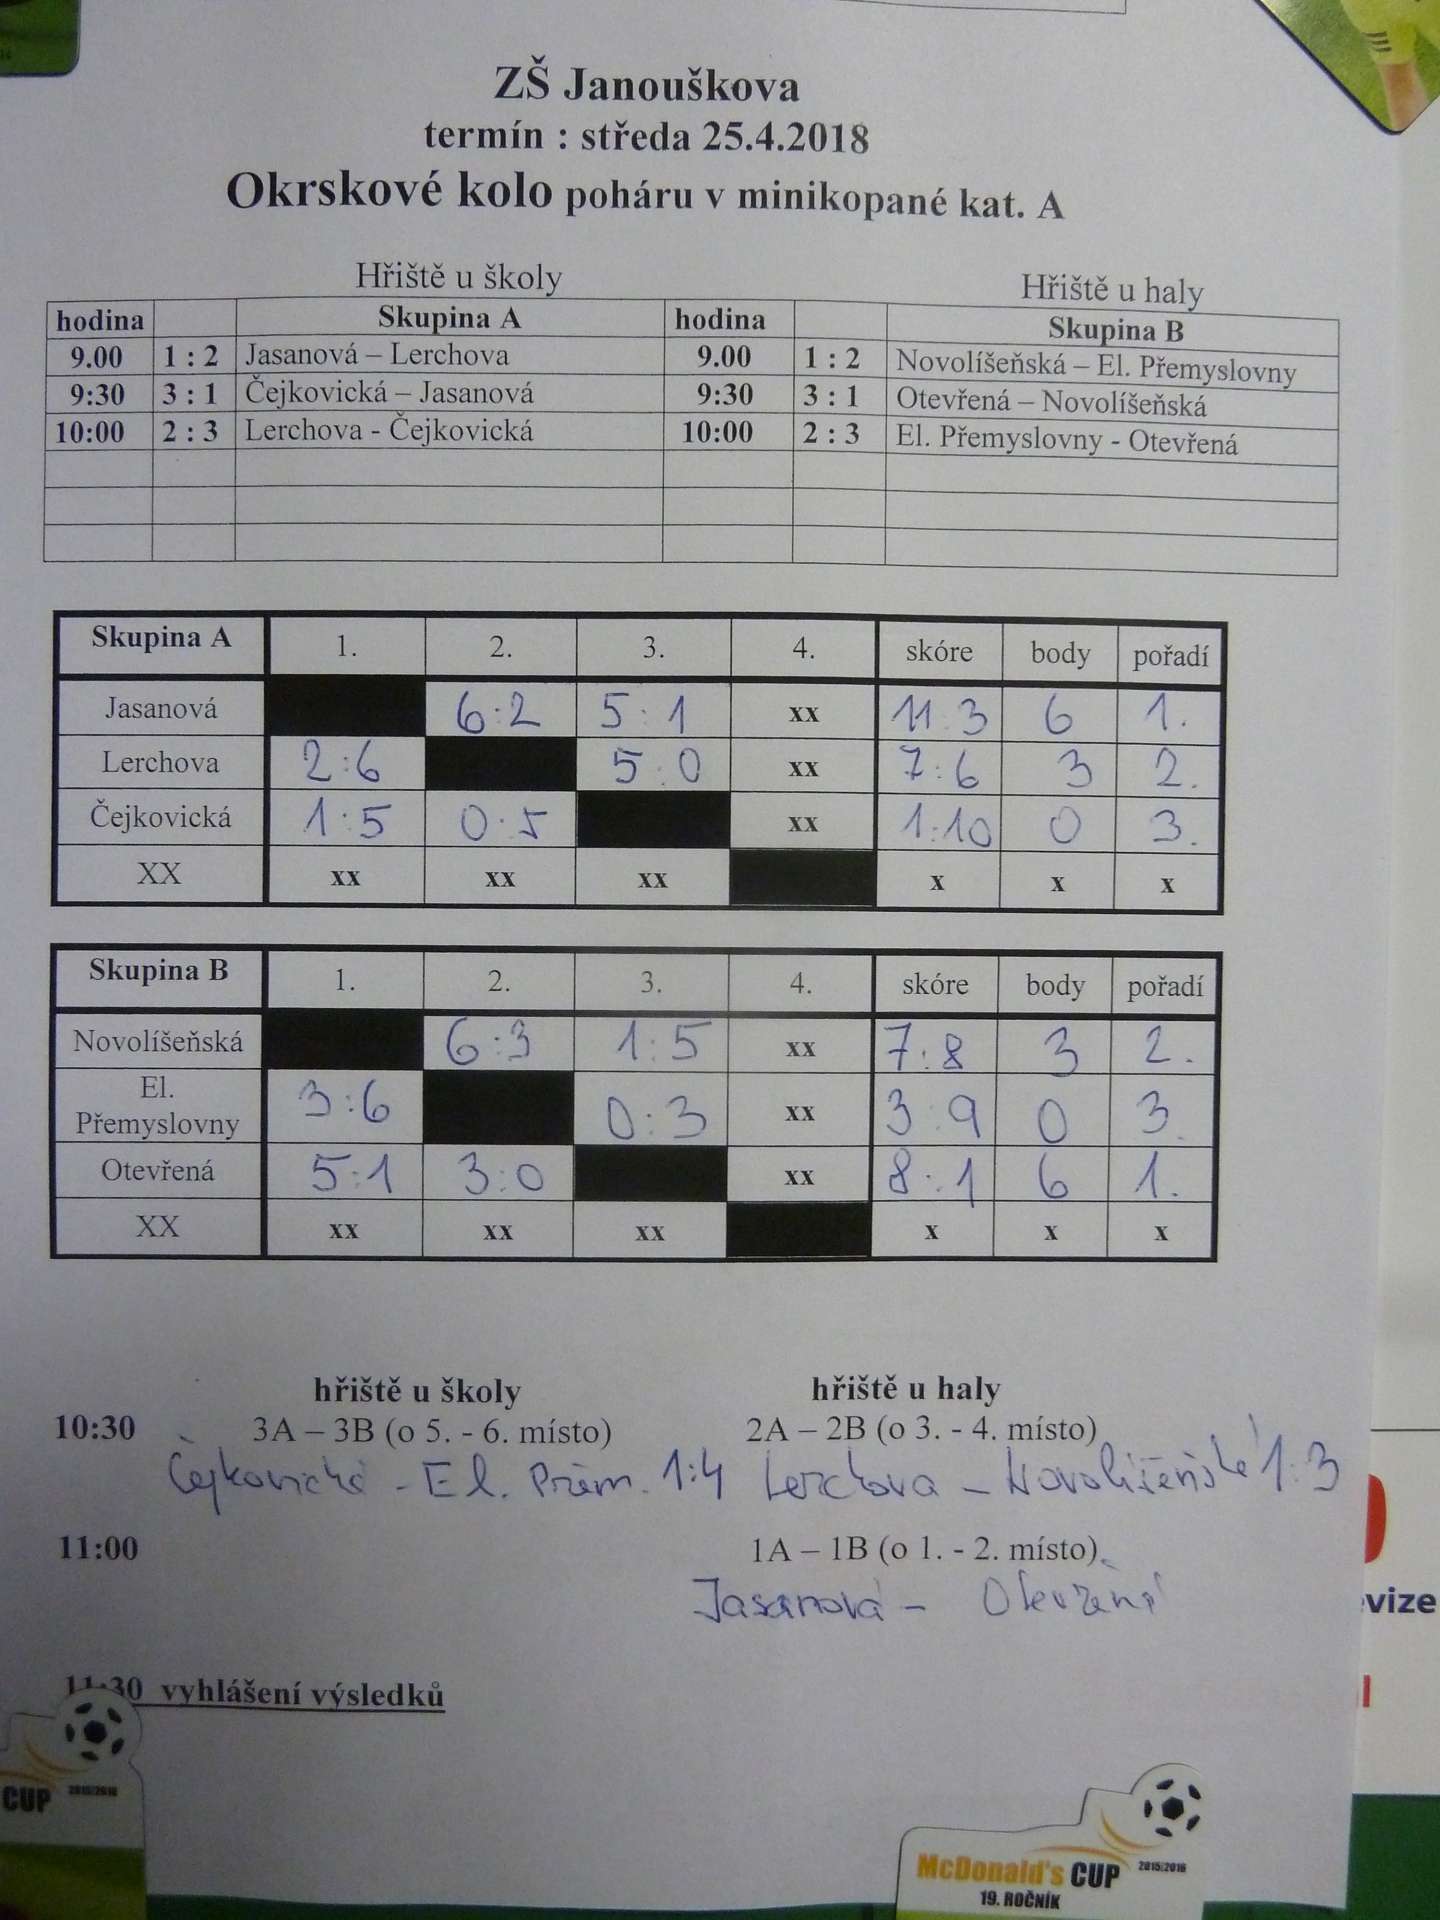 ZŠ Janouškova
termín : středa 25.4.2018
Okrskové kolo poháru v minikopané kat. A
Hřiště u školy Hřiště u haly
hodina Skupina A hodina Skupina B
9.00 1 : 2 Jasanová – Lerchova 9.00 1 : 2 Novolíšeňská – El. Přemyslovny
9:30 3 : 1 Čejkovická – Jasanová 9:30 3 : 1 Otevřená – Novolíšeňská
10:00 2 : 3 Lerchova - Čejkovická 10:00 2 : 3 El. Přemyslovny - Otevřená
Skupina A 1. 2. 3. 4. skóre body pořadí
Jasanová 6:2 5:1 xx 11:3 6 1.
Lerchova 2:6 5:0 xx 7:6 3 2.
Čejkovická 1:5 0:5 xx 1:10 0 3.
XX xx xx xx x x x
Skupina B 1. 2. 3. 4. skóre body pořadí
Novolíšeňská 6:3 1:5 xx 7:8 3 2.
El.
Přemyslovny 3:6 0:3 xx 3:9 0 3.
Otevřená 5:1 3:0 xx 8:1 6 1.
XX xx xx xx x x x
hřiště u školy hřiště u haly
10:30 3A – 3B (o 5. - 6. místo) 2A – 2B (o 3. - 4. místo)
Čejkovická - El. Přem. 1:4 Lerchova – Novolíšeňská 1:3
11:00 1A – 1B (o 1. - 2. místo)
Jasanová – Otevřená
11:30 vyhlášení výsledků
vize
CUP 2015/2016
McDonald's CUP 2015/2016
19. ROČNÍK